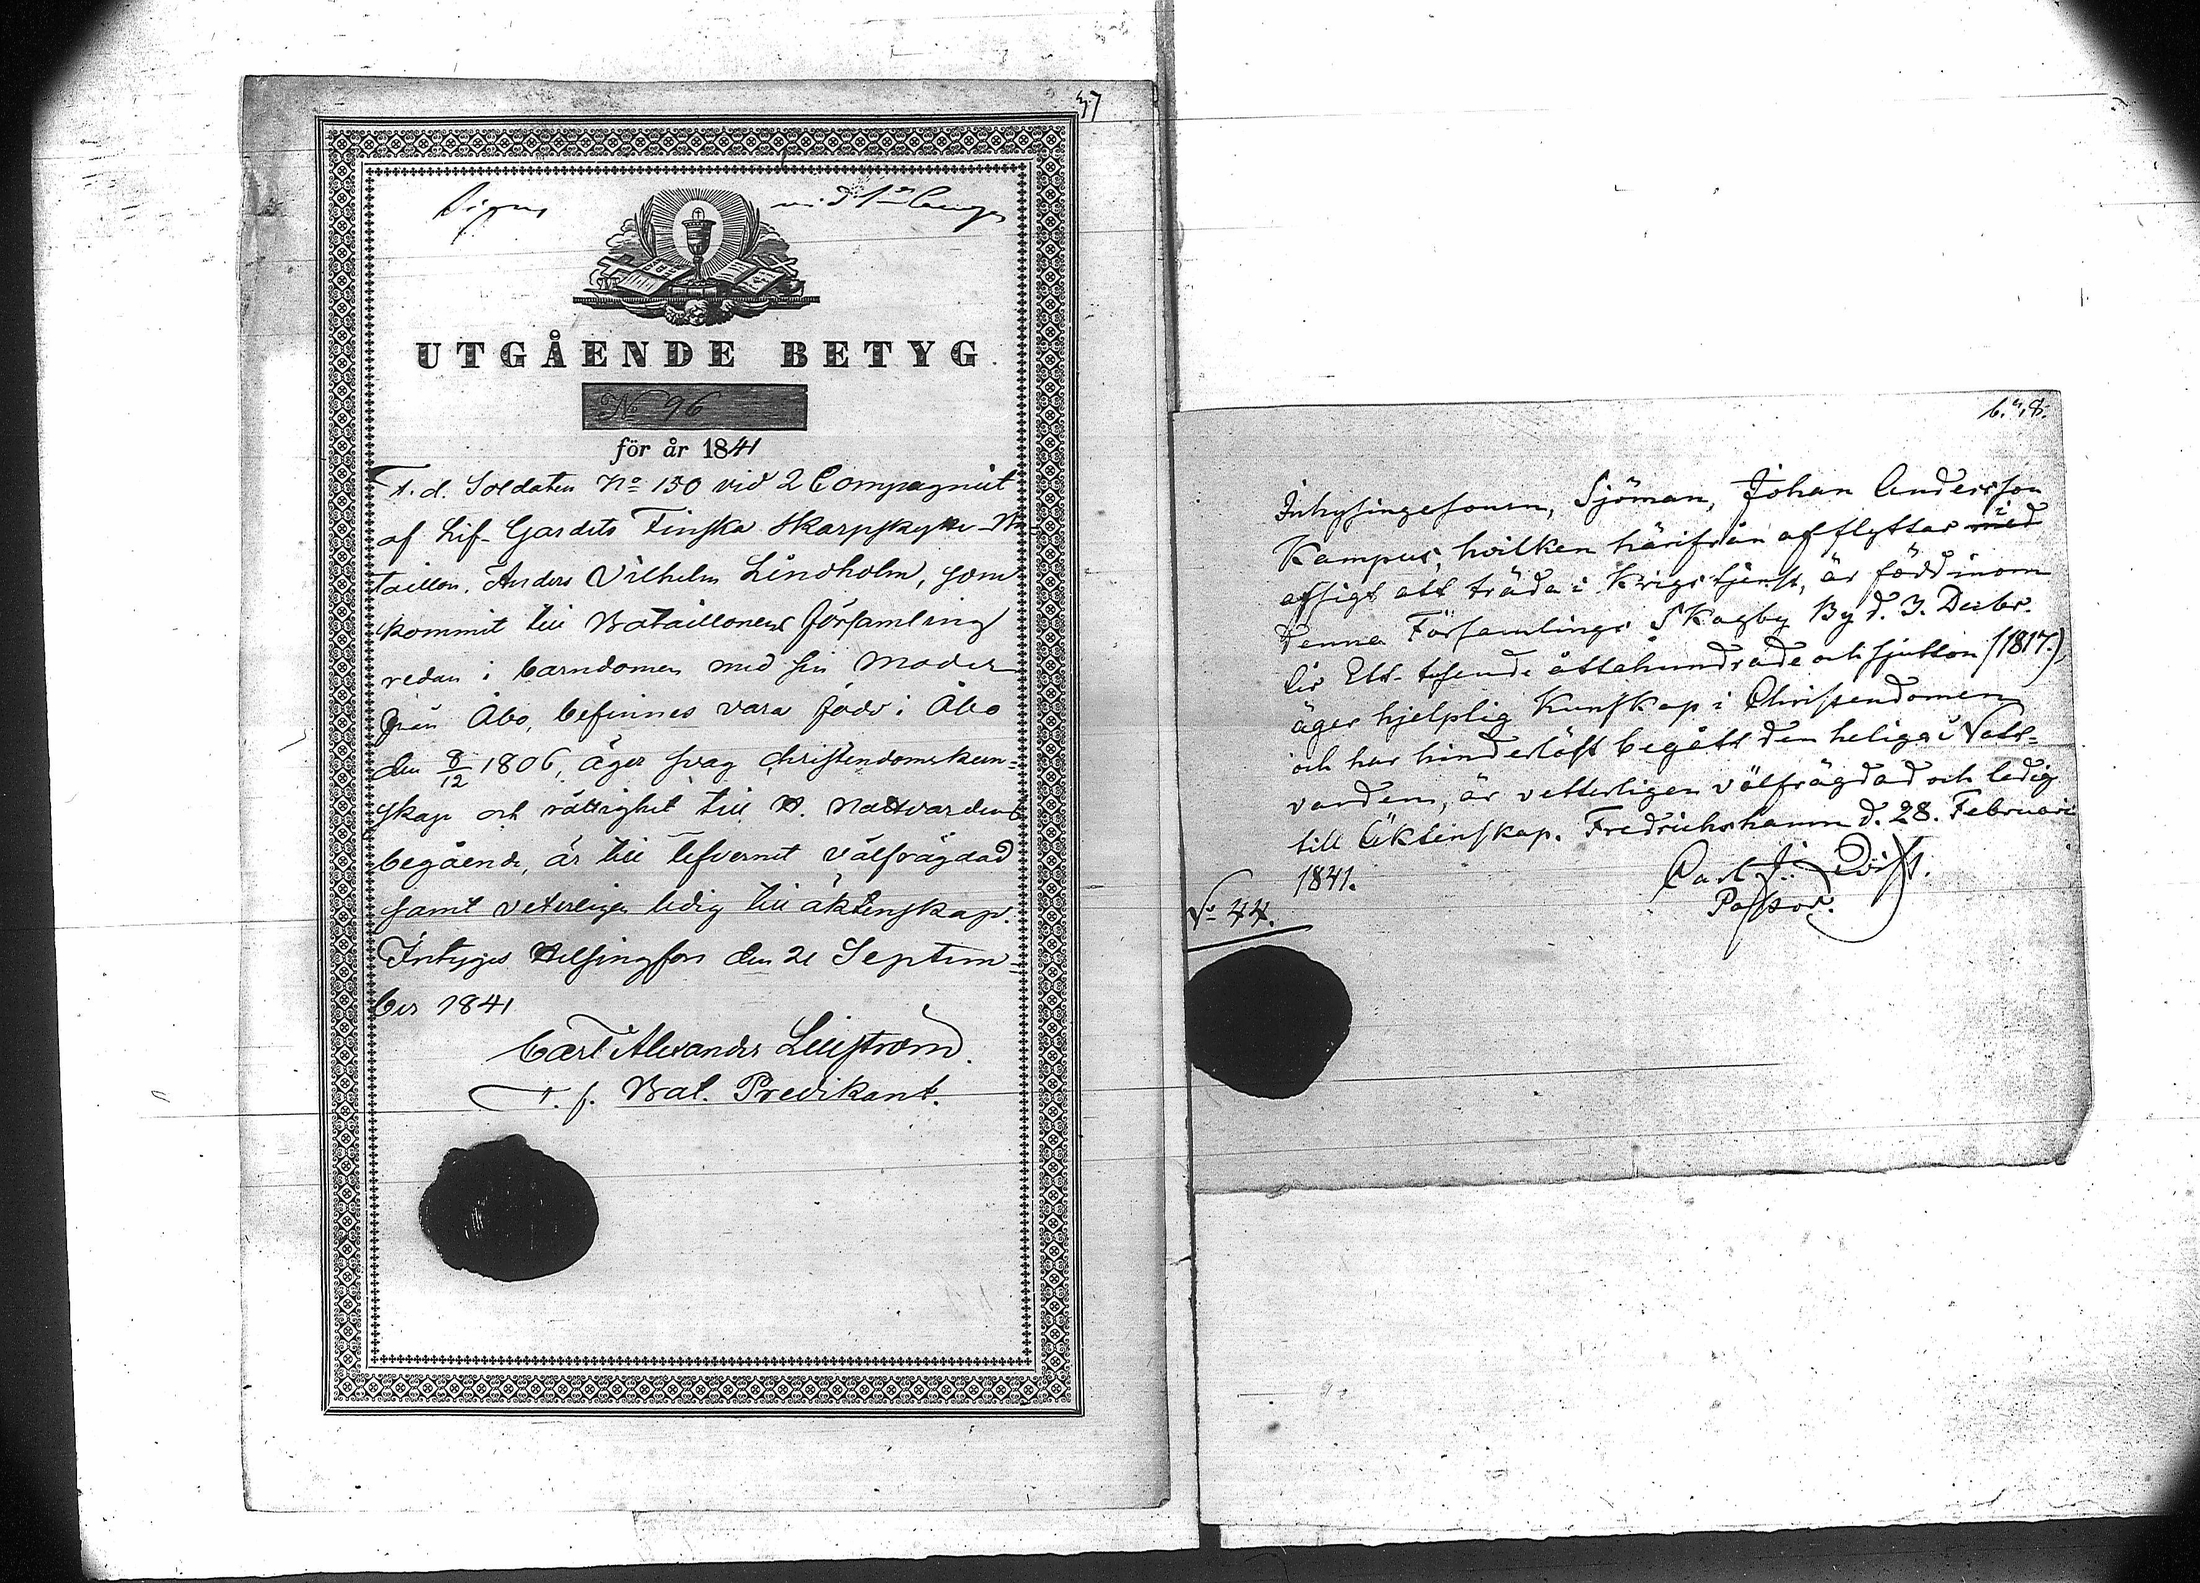 37
UTGÅENDE BETYG
No 96
för år 1841
F. d. Soldaten No 150 vid 2 Compagniet
af Lif-Gardets Finska Skarpskytte-Ba-
taillon, Anders Vilhelm Lindholm, som
kommit till Bataillonens Församling
redan i barndomen med sin Moder
från Åbo, befinnes vara född i Åbo
den 8/12 1806, äger svag Christendomskun-
skap och rättighet till H. Nattvardens
begående, är till lefvernet välfrägdad
samt veterligen ledig till äktenskap.
Intygas Helsingfors den 21 Septem-
ber 1841
Carl Alexander
T. f. Bat. Predikant.
Inhysingesonen, Sjöman, Johan Andersson
Kampus, hvilken härifrån afflyttar med i
afsigt att träda i Krigstjenst, är född inom
denna Församlings Skogby By d. 3. Decbr.
år Ett tusende åttahundrade och sjutton (1817.),
äger hjelplig Kunskap i Christendomen
och har hinderlöst begått den heliga Natt-
varden, är vetterligen välfrägdad och ledig
till Äktenskap. Fredrichshamn d. 28. Februari
1841.
Carl J.
Pastor.
No 44.